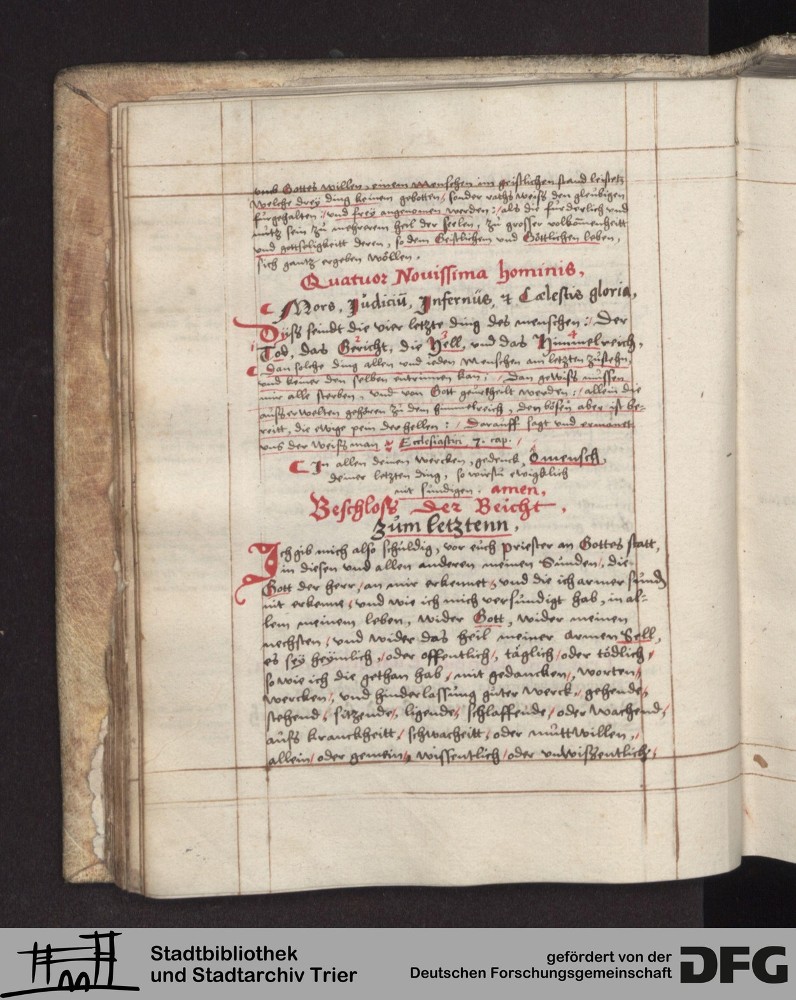 umb Gottes willen, einem Menschen im geistlichen stand leistet
welche drey ding keinen gebotten, sonder raths weiß den gleubigen
fürgehalten / und frey angenomen werden: / als die fürderlich und
nütz sein zu mehrerem heil der seelen, zu grosser volkomenheitt
und gottseligkeitt deren, so dem Geistlichen und Göttlichen leben,
sich gantz ergeben wöllen.
Quatuor Novissima hominis,
Mors, Judiciū, Infernus, & Cælestis gloria,
Diß seindt die vier letzte ding des menschen: / Der
Tod, das Gericht, die Hell, und das Himmelreich,
Dan solche ding allen und ieden Menschen am letzten zustehn,
und keiner den selben entrinnen kan; / Dan gewiß müssen
mir alle sterben, und von Gott geurtheilt werden: / allein die
außerwelten gehören zu dem himmelreich, den bösen aber ist be-
reitt, die ewige pein der hellen: / Darauff sagt und ermanet
uns der Weißman Ecclesiastici 7. cap. /
In allen deinen wercken, gedenck, O mensch,
deiner letzten ding, so wirstu ewigklich
nit sündigen. amen,
Beschloß der Beicht,
zum letztenn,
Ich gib mich also schuldig, vor euch priester an Gottes statt,
in diesen und allen anderen meinen Sünden, die
Gott der herr, an mir erkennet, und die ich armer sünder
nit erkenne, und wie ich mich versündigt hab, in al-
lem meinem leben, wider Gott, wider meinen
nechsten, und wider das heil meiner armen Sell,
es sey heymlich, oder offentlich, täglich, oder tödlich,
so wie ich die gethan hab, mit gedancken, worten,
wercken, und hinderlassung guter werck, gehende,
stehend, sitzende, ligende, schlaffende, oder wachend,
auß kranckheitt, schwacheitt, oder muttwillen,
allein, oder gemein, wissentlich, oder unwissentlich,
Stadtbibliothek
und Stadtarchiv Trier
gefördert von der
Deutschen Forschungsgemeinschaft
DFG